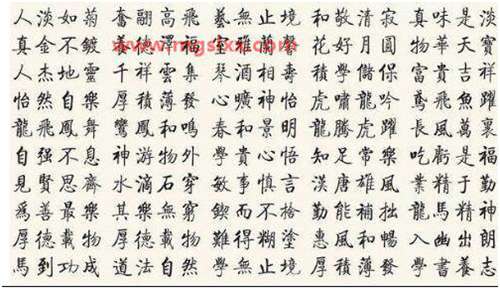 人淡如菊 奮翮高飛 藝無止境 和敬清寂 真味是淡
真金不鍍 德澤福 蘭馨 花好月圓 物華天寶
人杰地靈 千祥雲集 琴酒相壽 學儲 富貴吉祥
怡然自樂 厚積薄發 心曠神怡 虎嘯龍吟 鳶飛魚躍
龍飛鳳舞 鸞鳳和鳴 春和景明 龍騰虎躍 長風萬裏
自强不息 神游物外 學貴心悟 知足常樂 吃虧是福
見賢思齊 水滴石穿 敏事慎言 漢唐雄風 業精于勤
爲善最樂 其樂無窮 鍥而不捨 勤能補拙 龍馬精神
厚德載物 厚德載物 難得糊塗 惠風和暢 入幽出朗
馬到功成 道法自然 學無止境 厚積薄發 學書養志